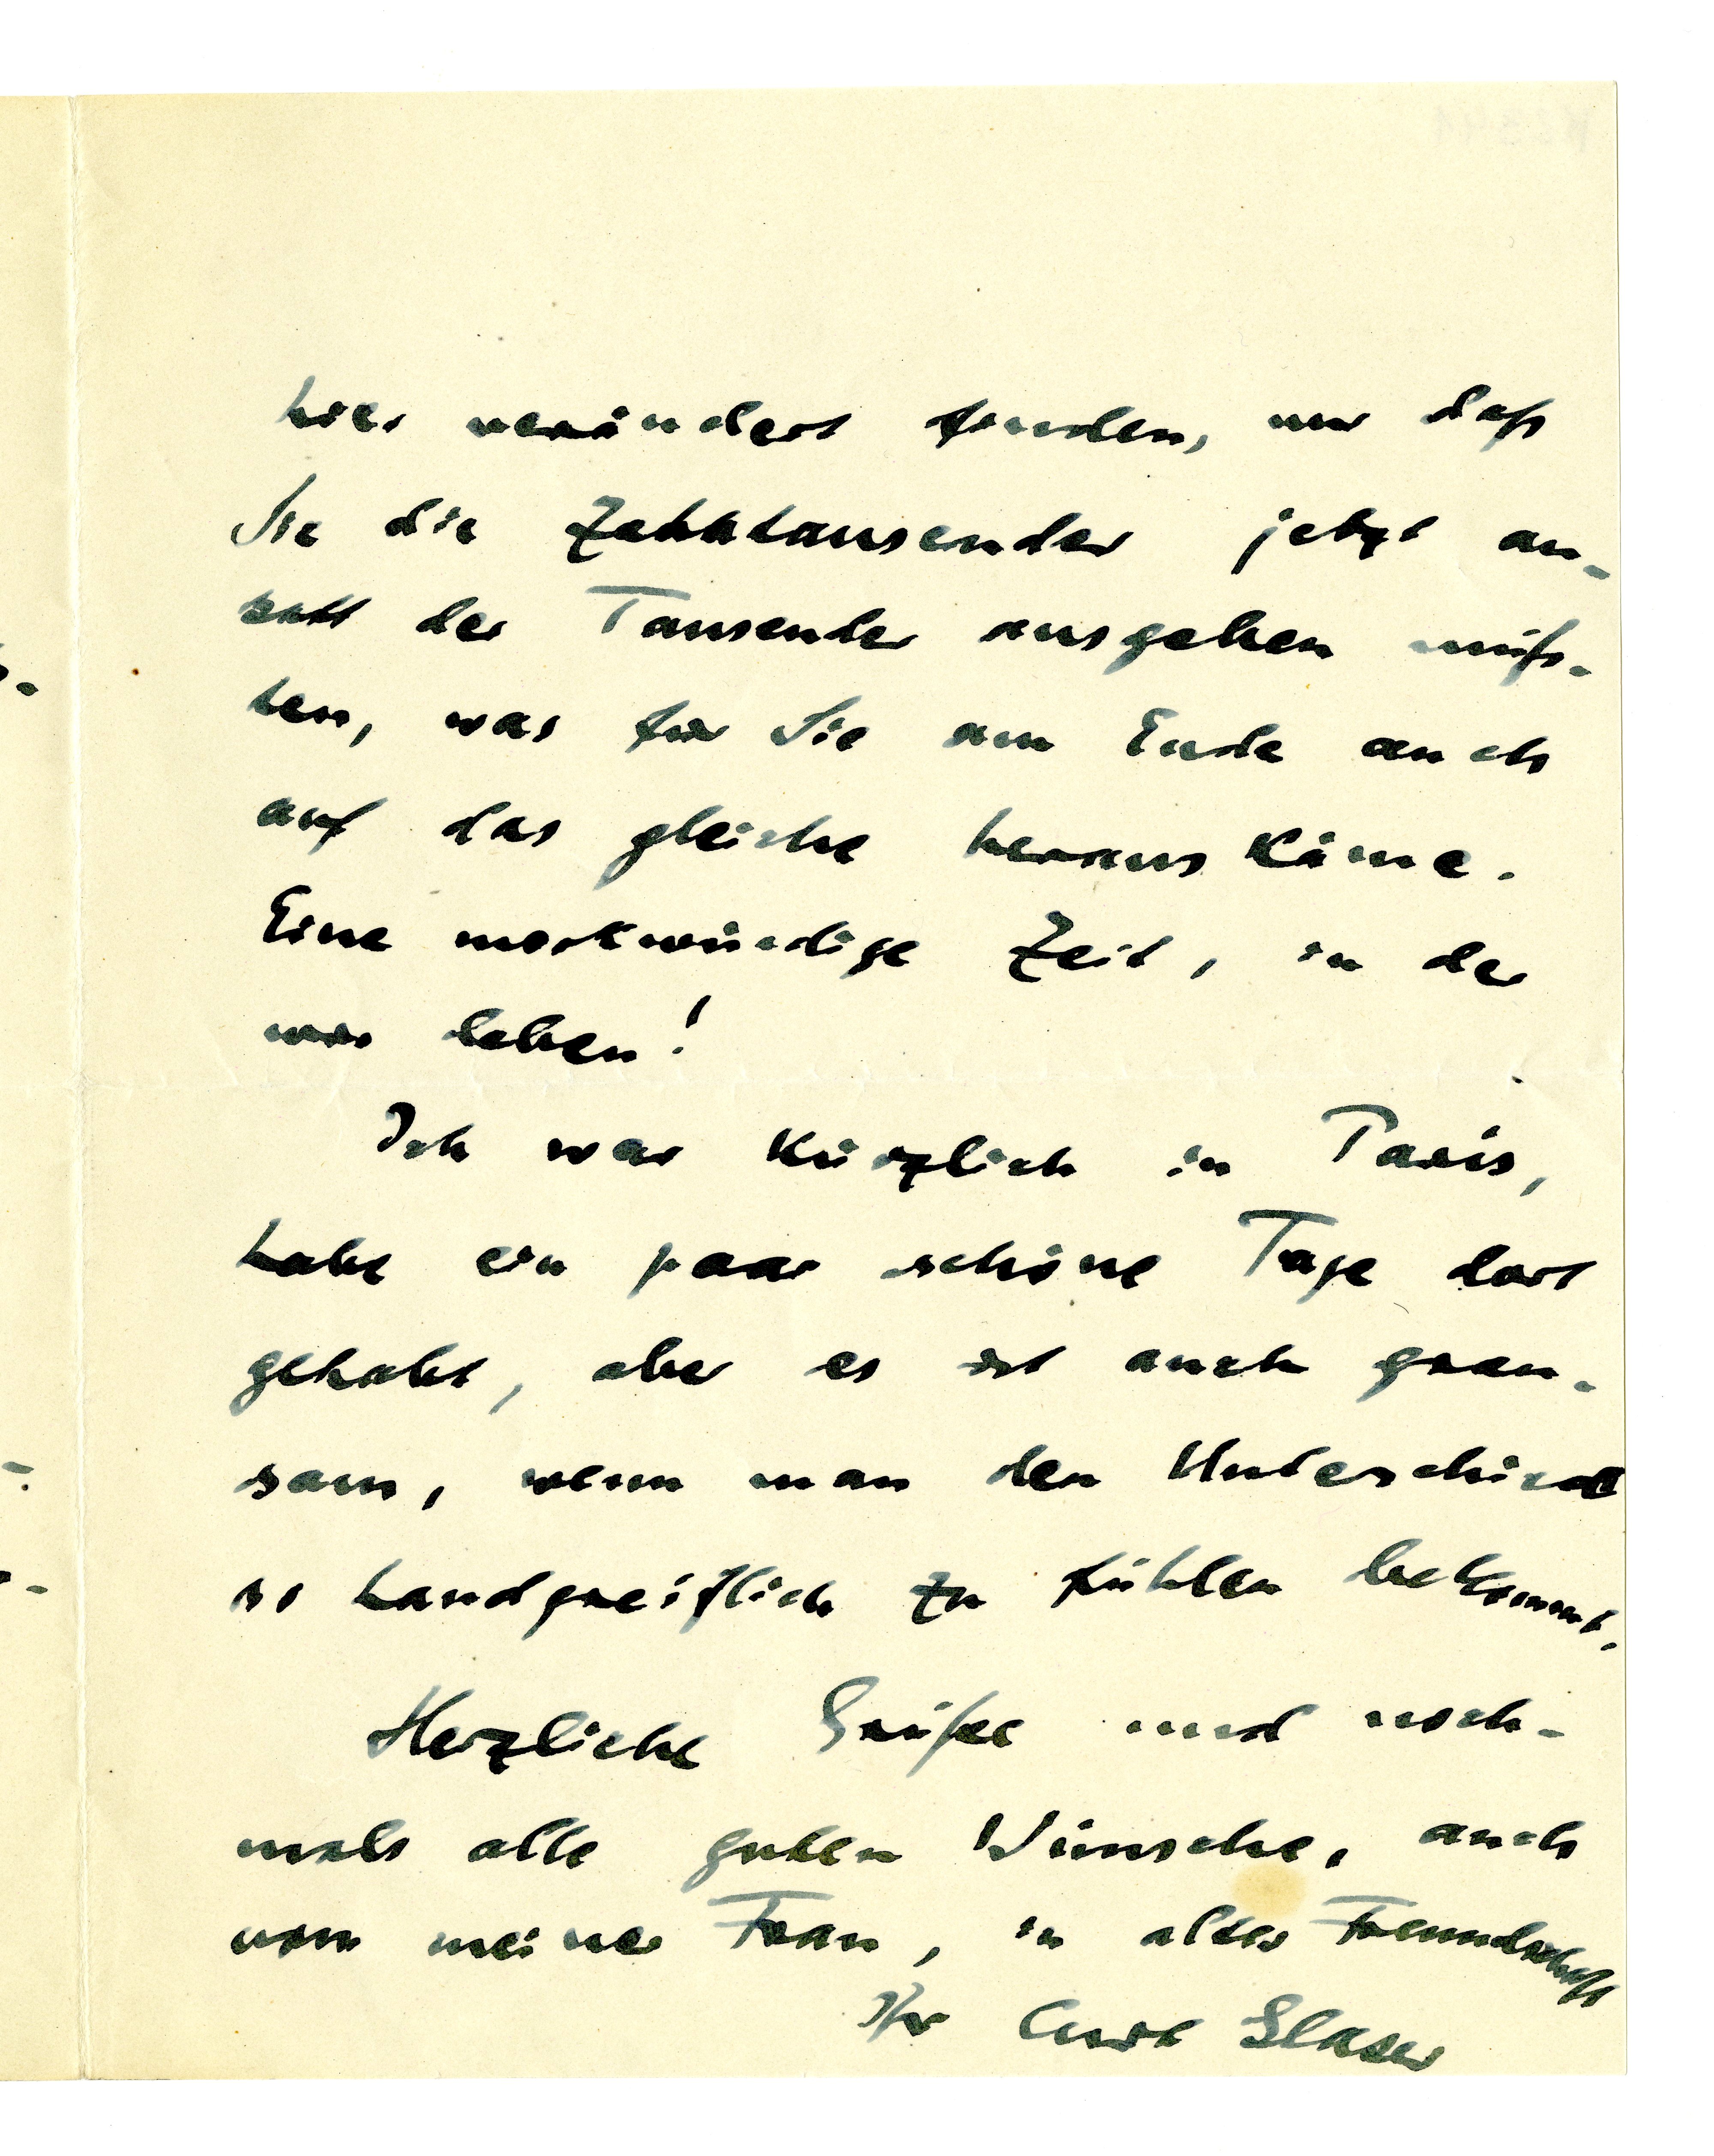 hier verändert finden, nur daß
Sie die Zehntausender jetzt an-
statt der Tausender ausgeben müß-
ten, was für Sie am Ende auch
auf das gleiche herauskäme.
Eine merkwürdige Zeit, in der
wir leben!
Ich war kürzlich in Paris,
habe ein paar schöne Tage dort
gehabt, aber es ist auch grau-
sam, wenn man den Unterschied
so handgreiflich zu fühlen bekommt.
Herzliche Grüße und noch-
mals alle guten Wünsche, auch
von meiner Frau, in alter Freundschaft
Ihr Curt Glaser